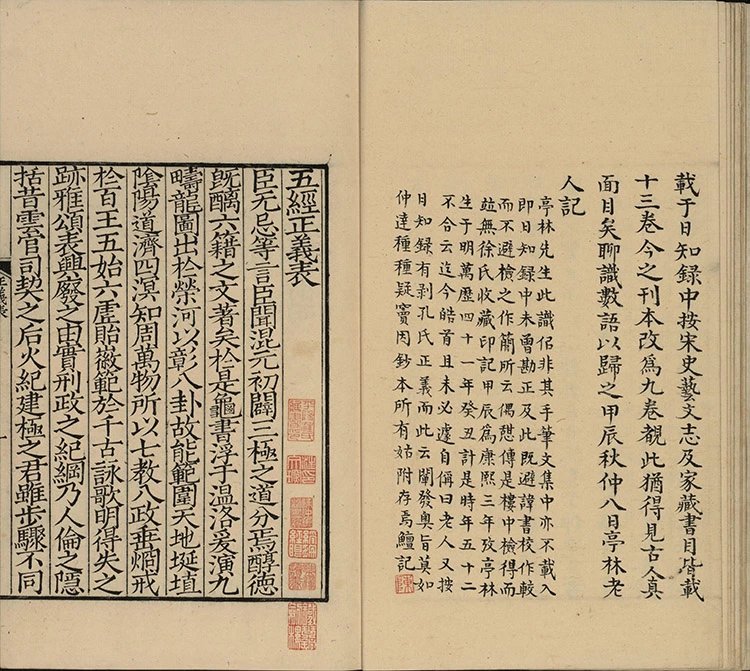 載于日知錄中按宋史藝文志及家藏書目皆載
十三卷今之刊本改爲九卷覩此猶得見古人真
面目矣聊識數語以歸之甲辰秋仲八日亭林老
人記
亭林先生此識佀非其手筆文集中亦不載入
即日知錄中未曾勘正及此既避諱書校作較
而不避檢之作簡所云偶憇傳是樓中檢得而
竝無徐氏收藏印記甲辰爲康熙三年攷亭林
生于明萬歷四十一年癸丑計是時年五十二
不合云迄今皓首且未必遽自偁曰老人又按
日知錄有剥孔氏正義而此云闡發奧旨莫如
仲達種種疑竇因鈔本所有姑附存焉鱣記
五經正義表
臣无忌等言臣聞混元初闢三極之道分焉醇德
旣醨六籍之文著矣於是龜書浮于溫洛爰演九
疇龍圖出於榮河以彰八卦故能範圍天地埏埴
隂陽道濟四溟知周萬物所以七教八政垂烱戒
於百王五始六虛貽徽範於千古詠歌明得失之
跡雅頌表興廢之由實刑政之紀綱乃人倫之隱
括昔雲官司契之后火紀建極之君雖步驟不同